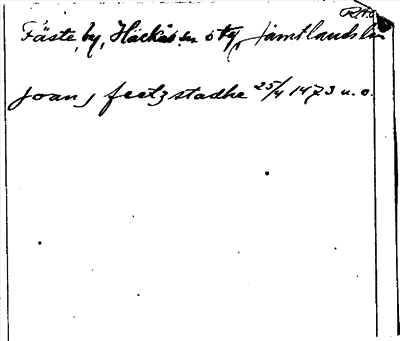 RAÖ
Fäste by, Häckås sn o tg, Jämtlands län
joan j feetzstadhe 25/4 1473 u. o.